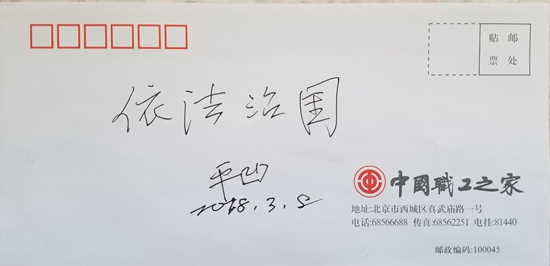 贴 邮
票 处
依法治国
2018.3.8
中國職工之家
地址:北京市西城区真武庙路一号
电话:68566688 传真:68562251 电挂:81440
邮政编码:100045